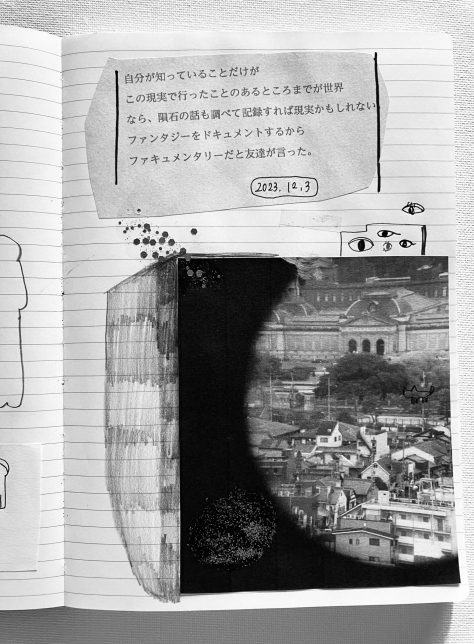 自分が知っていることだけが
この現実で行ったことのあるところまでが世界
なら、隕石の話も調べて記録すれば現実かもしれない
ファンタジーをドキュメントするから
ファキュメンタリーだと友達が言った。
2023.12.3